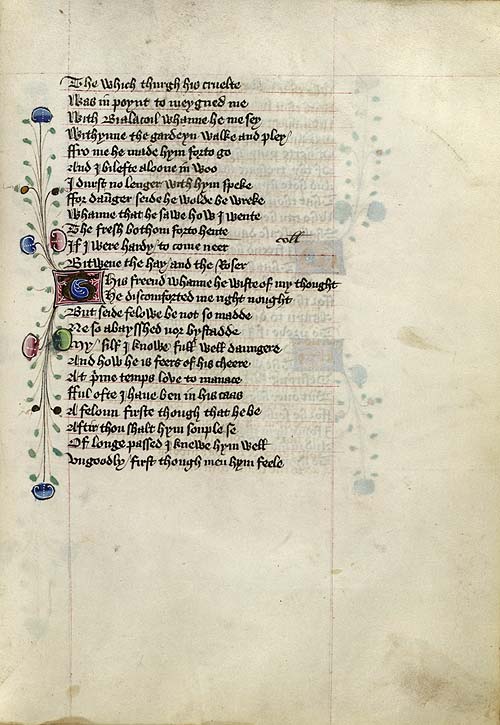 The which thurgh his cruelte
Was in poynt to meygned me
With Bialacoil whanne he me sey
Withynne the gardeyn walke and pley
ffro me he made hym forto go
And I bilefte aloone in woo
I durst no lenger with hym speke
ffor daunger seide he wolde be wreke
Whanne that he sawe how I wente
The fresh bothom forto hente
If I were hardy to come neer
Bitwene the hay and the Roser
This freend whanne he wiste of my thought
He discomforted me right nought
But seide felowe be not so madde
Ne so abaysshed nor bystadde
My silf I knowe full well daungere
And how he is feers of his cheere
At prime temps love to manace
fful ofte I have ben in his caas
A feloun firste though that he be
Aftir thou shalt hym souple se
Of longe passed I knewe hym well
Vngoodly first though men hym feele